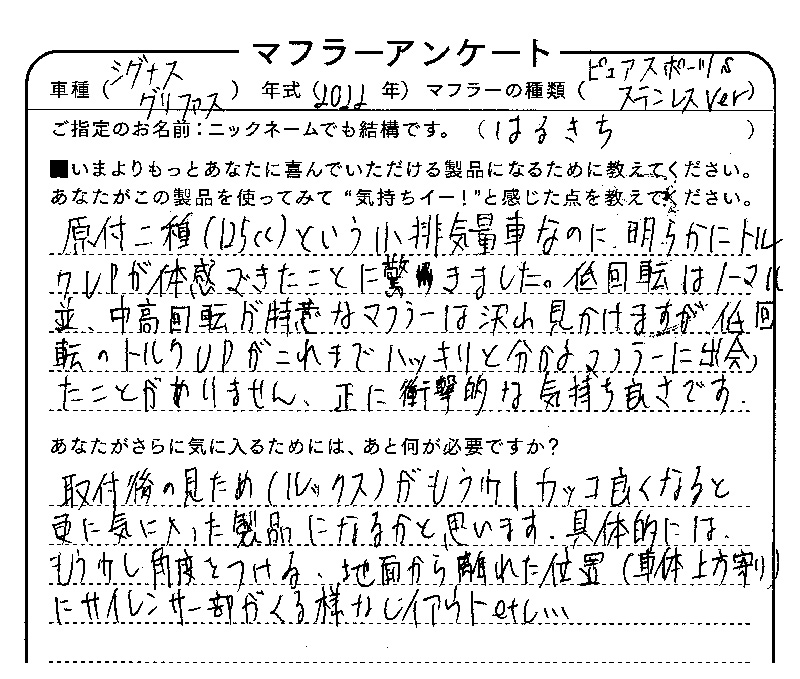 マフラーアンケート
車種（シグナス グリファス） 年式（2022年）マフラーの種類（ピュアスポーツS ステンレスVer）
ご指定のお名前：ニックネームでも結構です。（はるきち）
■いまよりもっとあなたに喜んでいただける製品になるために教えてください。
あなたがこの製品を使ってみて“気持ちイー！”と感じた点を教えてください。
原付二種（125cc）という小排気量車なのに、明らかにトル
クUPが体感できたことに驚きました。低回転はノーマル
並、中高回転が得意なマフラーは沢山見かけますが低回
転のトルクUPがこれまでハッキリと分かるマフラーに出会っ
たことがありません、正に衝撃的な気持ち良さです。
あなたがさらに気に入るためには、あと何が必要ですか？
取付後の見ため（ルックス）がもう少しカッコ良くなると
更に気に入った製品になるかと思います。具体的には、
もう少し角度をつける、地面から離れた位置（車体上方寄り）
にサイレンサー部がくる様なレイアウトetc...